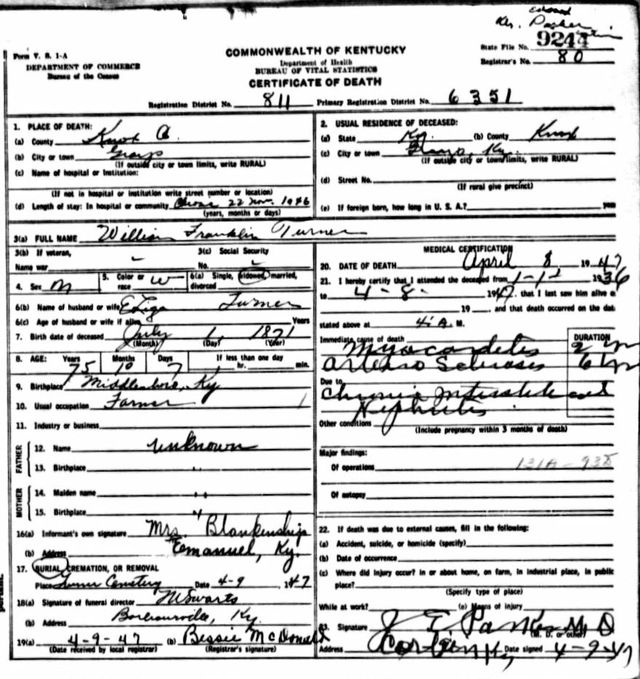 Ky.
Form V. S. 1-A
DEPARTMENT OF COMMERCE
Bureau of the Census
COMMONWEALTH OF KENTUCKY
Department of Health
BUREAU OF VITAL STATISTICS
CERTIFICATE OF DEATH
State File No. 9244
Registrar's No. 80
Registration District No. 811 Primary Registration District No. 6351
1. PLACE OF DEATH:
(a) County Knox Co.
(b) City or town
(If outside city or town limits, write RURAL)
(c) Name of hospital or Institution:
(If not in hospital or institution write street number or location)
(d) Length of stay: In hospital or community Since 22 Nov. 1946
(years, months or days)
2. USUAL RESIDENCE OF DECEASED:
(a) State Ky. (b) County Knox
(c) City or town Ky.
(If outside city or town limits, write RURAL)
(d) Street No.
(If rural give precinct)
(e) If foreign born, how long in U. S. A.? years
3(a) FULL NAME William Franklin Turner
3(b) If veteran, Name war -
3(c) Social Security No.
4. Sex M 5. Color or race W 6(a) Single, widowed, married, divorced
6(b) Name of husband or wife Turner
6(c) Age of husband or wife if alive Years
7. Birth date of deceased July 1 1871
(Month) (Day) (Year)
8. AGE: Years Months Days If less than one day
75 10 7 hr. min.
9. Birthplace Middlesboro, Ky
10. Usual occupation Farmer
11. Industry or business
FATHER
12. Name unknown
13. Birthplace "
MOTHER
14. Maiden name "
15. Birthplace "
16(a) Informant's own signature Mrs. Blankenship
(b) Address Emanuel, Ky.
17. BURIAL, CREMATION, OR REMOVAL
Place Cemetery Date 4-9 1947
18(a) Signature of funeral director
(b) Address Barbourville, Ky
19(a) 4-9-47 (b) Bessie McDonald
(Date received by local registrar) (Registrar's signature)
MEDICAL CERTIFICATION
20. DATE OF DEATH April 8 1947
21. I hereby certify that I attended the deceased from 1-1- 1936
to 4-8- 1947 that I last saw him alive on
19 and that death occurred on the date
stated above at 4: A. M.
Immediate cause of death DURATION
Myocarditis
Arterio Sclerosis
Due to
Chronic Interstitial
Nephritis
Other conditions
(Include pregnancy within 3 months of death)
Major findings:
Of operations 131A-93D
Of autopsy
22. If death was due to external causes, fill in the following:
(a) Accident, suicide, or homicide (specify)
(b) Date of occurrence
(c) Where did injury occur? In or about home, on farm, in industrial place, in public place?
(Specify type of place)
While at work? (e) Means of injury
23. Signature J. T. Parker M D
(M. D. or other)
Address Corbin Ky Date signed 4-9-47